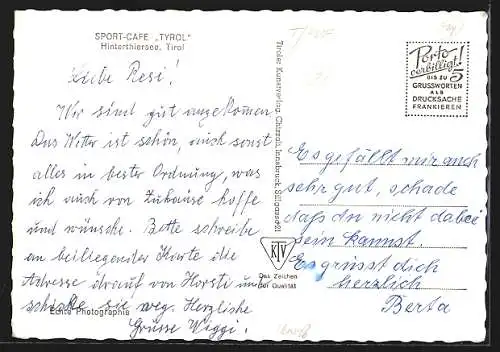 SPORT-CAFE „TYROL"
Hinterthiersee, Tirol
Liebe Resi!
Wir sind gut angekommen
Das Wetter ist schön, auch sonst
alles in bester Ordnung, was
ich auch von Zuhause hoffe
und wünsche. Bitte schreibe
an beiliegender Karte die
Adresse drauf von Horsti und
schicke sie weg. Herzliche
Grüsse Wiggi.
Echte Photographie
Tiroler Kunstverlag Chizzali, Innsbruck, Sillgasse 21
KTV
Das Zeichen
der Qualität
Porto
verbilligt!
BIS ZU 5
GRUSSWORTEN
ALS
DRUCKSACHE
FRANKIEREN
Es gefällt mir auch
sehr gut, schade
daß du nicht dabei
sein kannst.
Es grüsst dich
herzlich
Berta